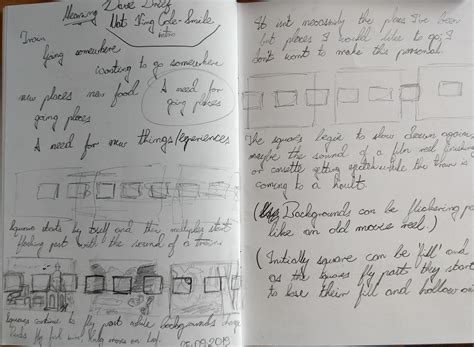 Meaning Dave Brief
Nat King Cole - Smile
intro
Train
going somewhere
wanting to go somewhere
new places new food
A need for
going places
going places
A need for new things/experiences
Squares starts by itself and then multiply start
flashing past with the sound of a train.
Squares continue to fly past while backgrounds change
05.09.2018
It not necessarily the places I've been
but places I would like to go, I
don't want to make this personal.
The squares begin to slow down again
maybe the sound of a film reel finishing
or cassette getting ejected while the train is
coming to a hault.
(Backgrounds can be flickering past
like an old movie reel.)
(Initially square can be 'fill' and
as the squares fly past they start
to lose their fill and hollow out